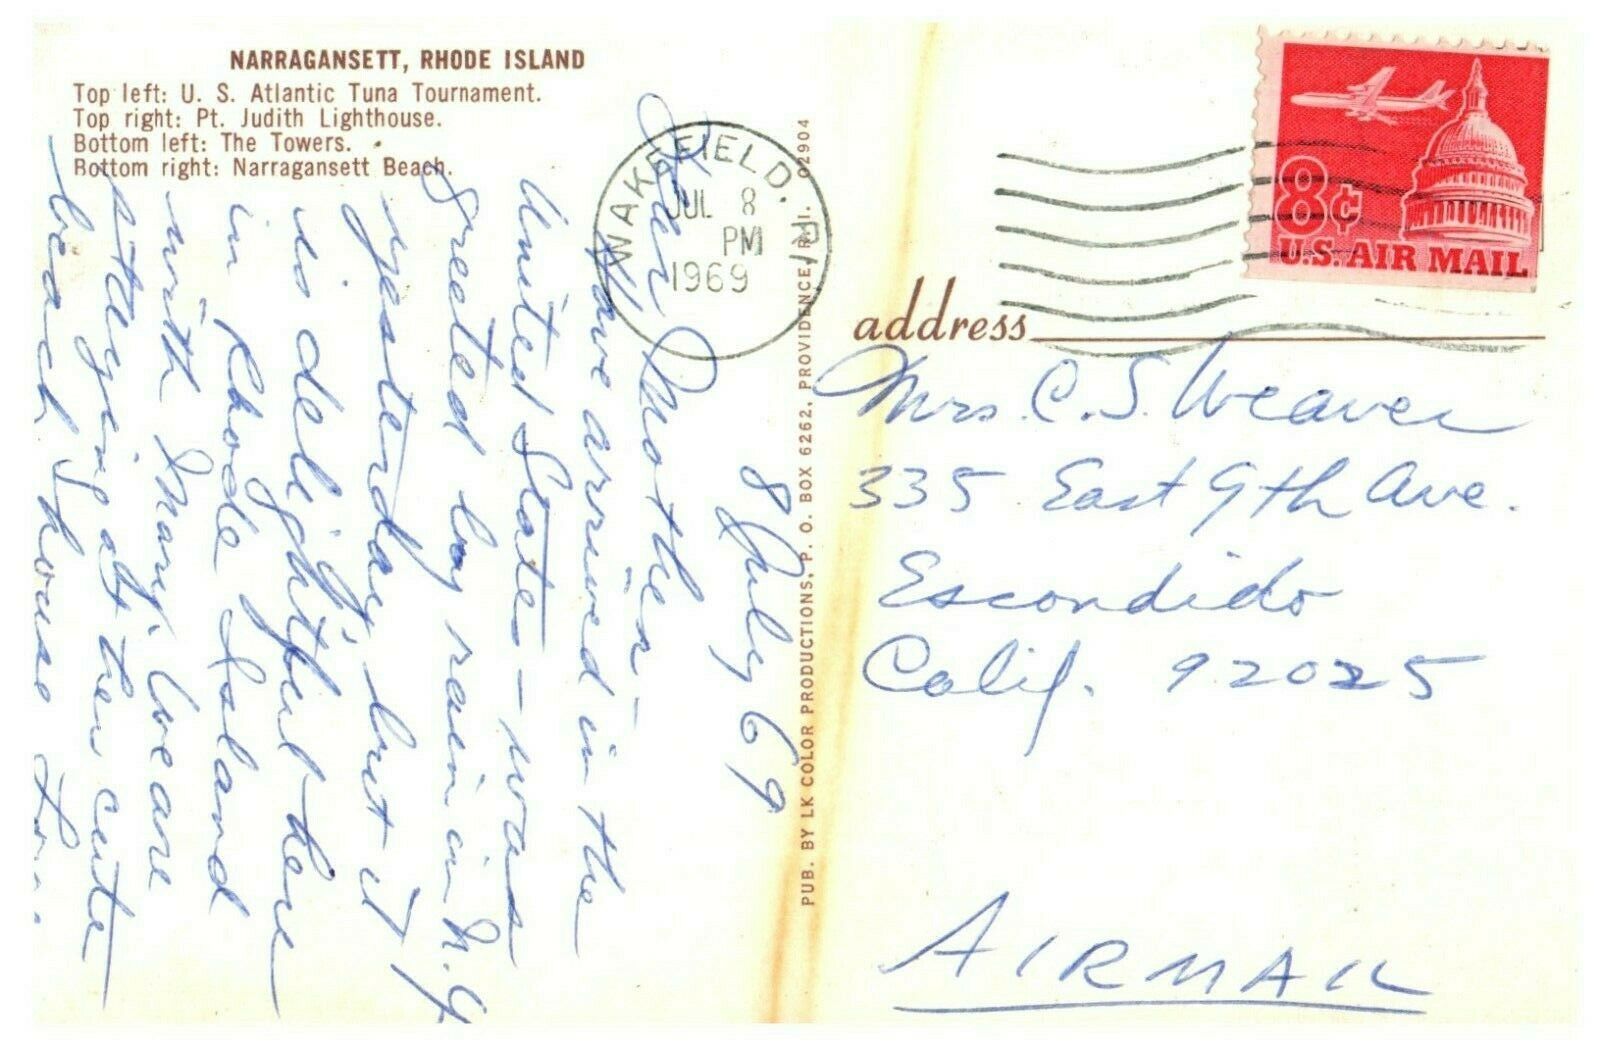 NARRAGANSETT, RHODE ISLAND
Top left: U. S. Atlantic Tuna Tournament.
Top right: Pt. Judith Lighthouse.
Bottom left: The Towers.
Bottom right: Narragansett Beach.
WAKEFIELD, R.I.
JUL 8
PM
1969
8¢
U.S. AIR MAIL
8 July 69
Dear Mother -
Have arrived in the
United States - was
greeted by rain in N.Y
yesterday, but it
is delightful here
in Rhode Island
with Mary. We are
staying at her cute
beach house
PUB. BY LK COLOR PRODUCTIONS, P. O. BOX 6262, PROVIDENCE, R. I. 02904
address
Mrs. C. S. Weaver
335 East 9th Ave.
Escondido
Calif. 92025
AIRMAIL